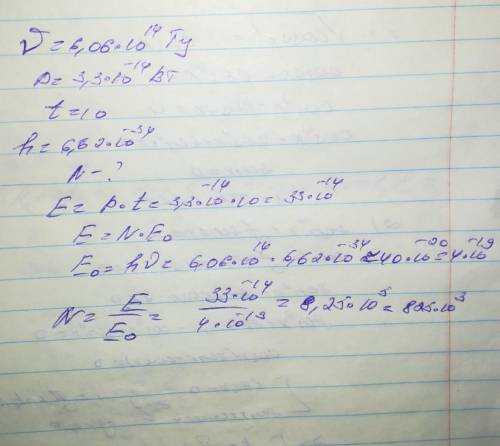 ν = 6,06·10¹⁴ Гц
p = 3,3·10⁻¹⁴ Вт
t = 10
h = 6,62·10⁻³⁴
N - ?
E = p·t = 3,3·10⁻¹⁴·10 = 33·10⁻¹⁴
E = N·E₀
E₀ = hν = 6,06·10¹⁴·6,62·10⁻³⁴ ≈ 40·10⁻²⁰ = 4·10⁻¹⁹
N = E/E₀ = 33·10⁻¹⁴/4·10⁻¹⁹ = 8,25·10⁵ = 825·10³